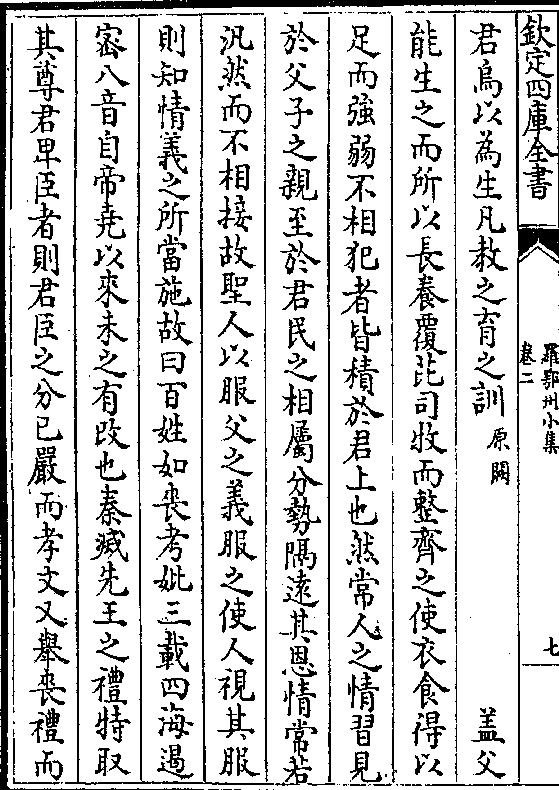 欽定四庫全書
羅鄂州小集
卷二
七
君烏以為生凡教之育之訓原闕 盖父
能生之而所以長養覆芘司牧而整齊之使衣食得以
足而強弱不相犯者皆積於君上也然常人之情習見
於父子之親至於君民之相屬分勢隔遠其恩情常若
汎然而不相接故聖人以服父之義服之使人視其服
則知情義之所當施故曰百姓如喪考妣三載四海遏
宻八音自帝堯以來未之有改也秦滅先王之禮特取
其尊君卑臣者則君臣之分已嚴而孝文又舉喪禮而